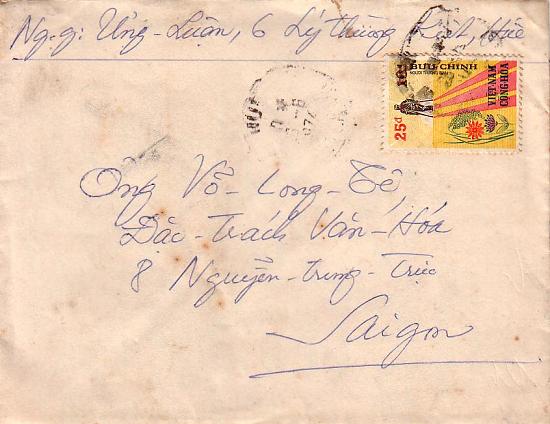 Ng.g: Ưng-Luận, 6 Lý thường Kiệt, Huế
BƯU CHÍNH
VIỆT-NAM
CỘNG-HÒA
25đ
HUẾ
Ông Võ-Long-Tê
Đặc-Trách Văn-Hóa
8 Nguyễn-trung-Trực
Saigon